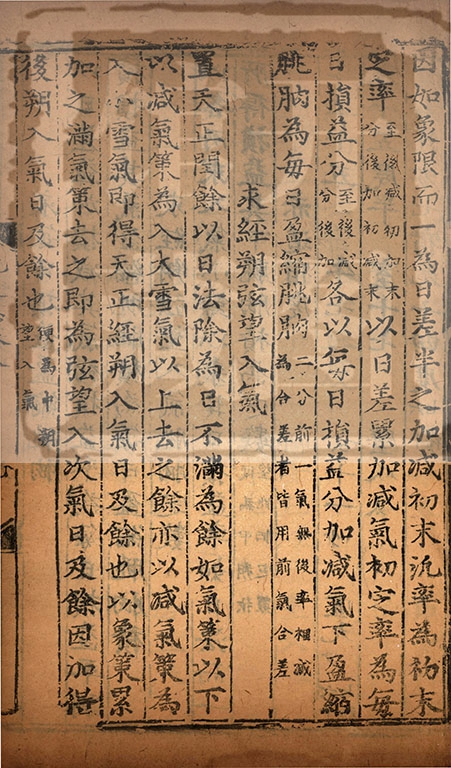 因如象限而一為日差半之加減初末汎率為初末
定率至後減初加末分後加初減末以日差累加減氣初定率為每
日損益分至後減分後加各以每日損益分加減氣下盈縮
朓朒為每日盈縮朓朒二分前一氣無後率相減為合差者皆用前氣合差
求經朔弦望入氣
置天正閏餘以日法除為日不滿為餘如氣策以下
以減氣策為入大雪氣以上去之餘亦以減氣策為
入小雪氣即得天正經朔入氣日及餘也以象策累
加之滿氣策去之即為弦望入次氣日及餘因加得
後朔入氣日及餘也便為中朔望入氣